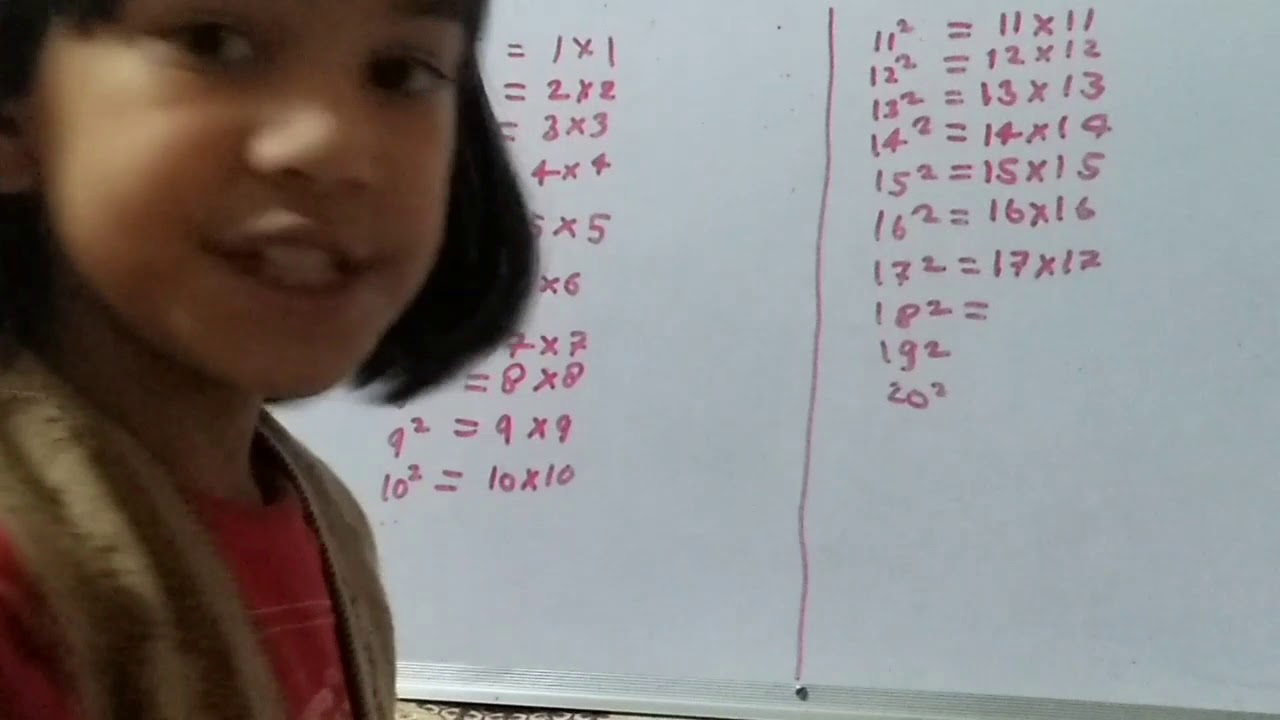 = 1×1
= 2×2
= 3×3
4×4
5×5
×6
7×7
= 8×8
9² = 9×9
10² = 10×10
11² = 11×11
12² = 12×12
13² = 13×13
14² = 14×14
15² = 15×15
16² = 16×16
17² = 17×17
18² =
19²
20²